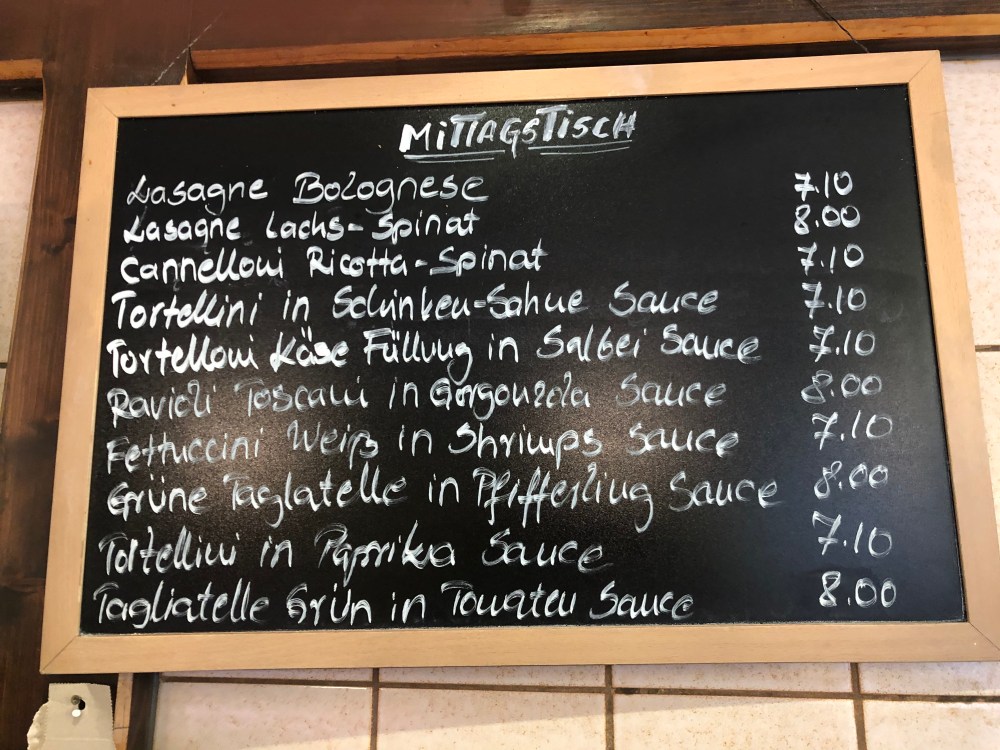 MITTAGSTISCH
Lasagne Bolognese 7.10
Lasagne Lachs-Spinat 8.00
Cannelloni Ricotta-Spinat 7.10
Tortellini in Schinken-Sahne Sauce 7.10
Tortelloni Käse Füllung in Salbei Sauce 7.10
Ravioli Toscani in Gorgonzola Sauce 8.00
Fettuccini Weiß in Shrimps Sauce 7.10
Grüne Taglatelle in Pfifferling Sauce 8.00
Tortellini in Paprika Sauce 7.10
Tagliatelle Grün in Tomaten Sauce 8.00